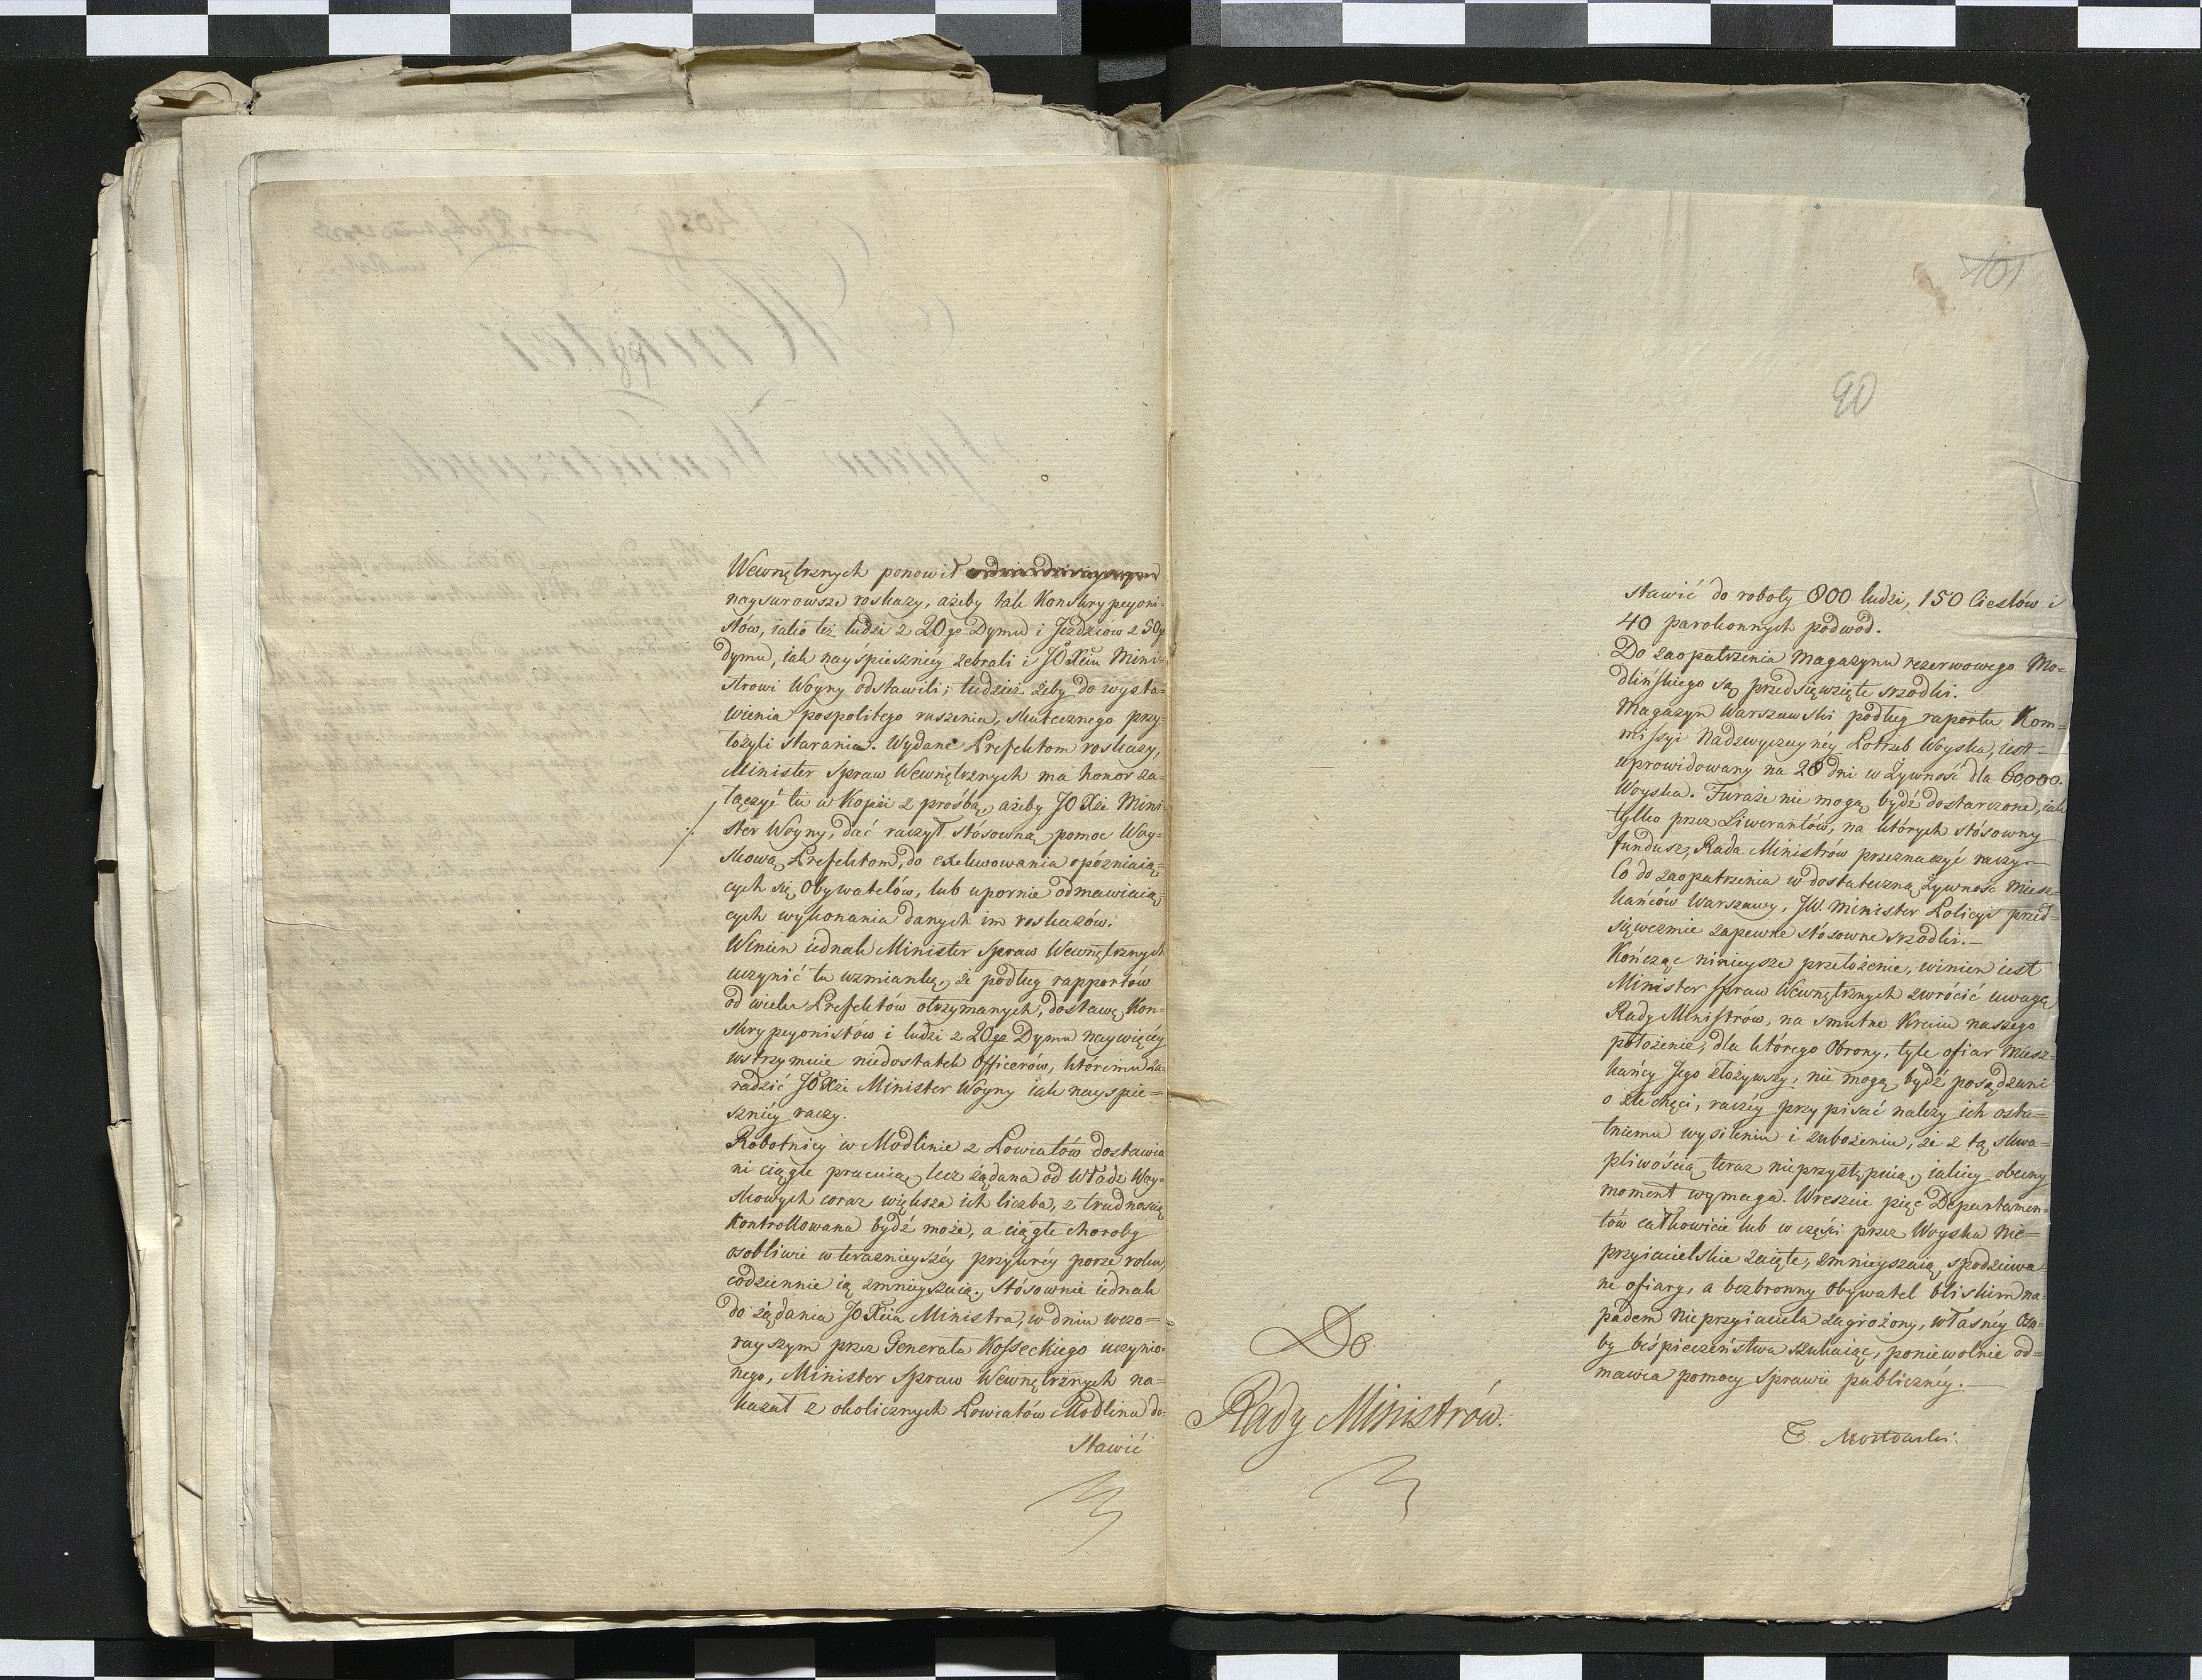 Wewnętrznych ponowił
naysurowsze roskazy, ażeby tak Konskrypcyoni-
stów, iako też ludzi z 20go Dymu i Jezdzców z 50g
dymu, iak nayśpieszniéy zebrali i JO Xciu Mini-
strowi Woyny odstawili; tudzież żeby do wysta-
wienia pospolitego ruszenia, skutecznego przy-
łożyli starania. Wydane Prefektom roskazy,
Minister Spraw Wewnętrznych ma honor za-
łączyć tu w Kopii z prośbą, ażeby JO Xże Mini-
ster Woyny, dać raczył stósowną pomoc Woy-
skową Prefektom, do exekwowania opózniaią-
cych się Obywatelów, lub upornie odmawiaią-
cych wykonania danych im roskazów.
Winien iednak Minister Spraw Wewnętrznych
uczynić tu wzmiankę, że podług rapportów
od wielu Prefektów otrzymanych, dostawę Kon-
skrypcyonistów i ludzi z 20go Dymu naywięcéy
wstrzymuie niedostatek Officerów, któremu za-
radzić JO Xże Minister Woyny iak nayspie-
szniéy raczy.
Robotnicy w Modlinie z Powiatów dostawia
ni ciągle pracuią, lecz żądana od Władz Woy-
skowych coraz większa ich liczba, z trudnością
kontrollowana bydź może, a ciągłe choroby
osobliwie w teraznieyszéy przykréy porze roku
codziennie ią zmnieyszaią. Stósownie iednak
do żądania JO Xcia Ministra, w dniu wczo-
rayszym przez Generała Kosseckiego uczynio-
nego, Minister Spraw Wewnętrznych na-
kazał z okolicznych Powiatów Modlina do-
stawić
101
90
stawić do roboty 800 ludzi, 150 Cieslów i
40 parokonnych podwod.
Do zaopatrzenia Magazynu rezerwowego Mo-
dlińskiego są przedsięwzięte srzodki.
Magazyn Warszawski podług raportu Kom-
missyi Nadzwyczaynéy Potrzeb Woyska, iest
uprowidowany na 20 dni w Żywność dla 60,000.
Woyska. Furaże nie mogą bydź dostarczone, iak
tylko przez Liwerantów, na których stósowny
fundusz, Rada Ministrów przeznaczyć raczy.
Co do zaopatrzenia w dostateczną Żywność Miesz-
kańców Warszawy, JW. Minister Policyi przed-
sięwezmie zapewne stósowne srzodki.
Kończąc ninieysze przełożenie, winien iest
Minister Spraw Wewnętrznych zwrócić uwagę
Rady Ministrów, na smutne Kraiu naszego
położenie, dla którego Obrony, tyle ofiar Miesz-
kańcy Jego złożywszy, nie mogą bydź posądzeni
o złe chęci, raczéy przypisać należy ich osta-
tniemu wysileniu i zubożeniu, że z tą skwa-
pliwością teraz nieprzystępuią, iakiey obecny
moment wymaga. Wreszcie pięć Departamen-
tów całkowicie lub w części przez Woyska Nie-
przyiacielskie zaięte, zmnieyszaią spodziewa-
ne ofiary, a bezbronny Obywatel bliskim na-
padem Nieprzyiaciela zagrożony, własnéy Oso-
by beśpieczeństwa szukaiąc, poniewolnie od-
mawia pomocy Sprawie publicznéy.
T. Mostowski.
Do
Rady Ministrów.